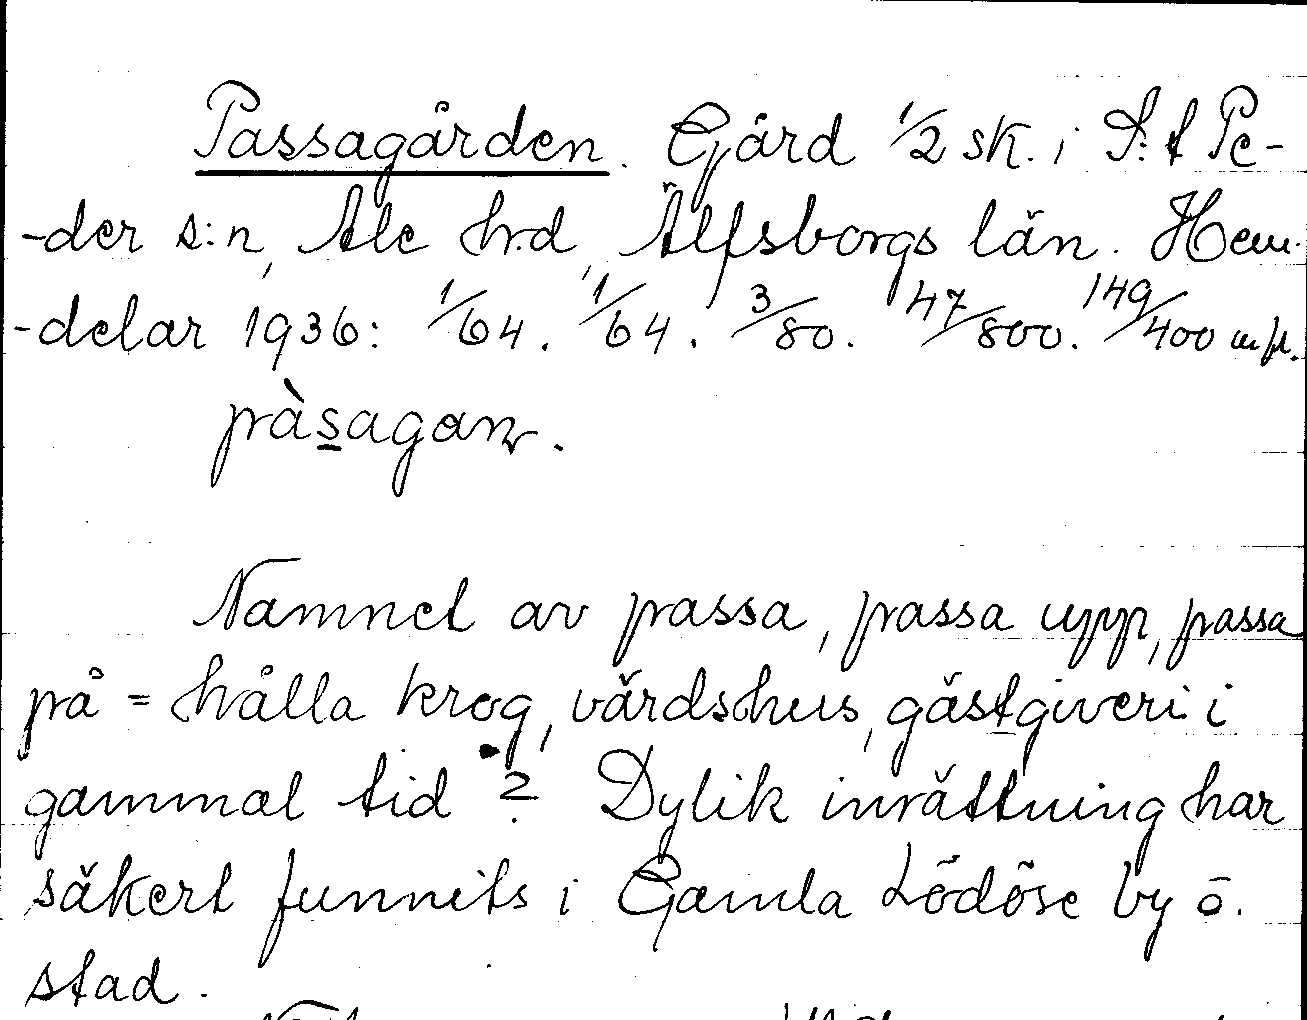 Passagården. Gård 1/2 sk. i S:t Pe-
-der s:n, Ale h:d, Älfsborgs län. Hem-
-delar 1936: 1/64. 1/64. 3/80. 47/800. 149/400 m.fl.
pàsagaɳ.
Namnet av passa, passa upp, passa
på = hålla krog, värdshus, gästgiveri i
gammal tid? Dylik inrättning har
säkert funnits i Gamla Lödöse by o.
stad.